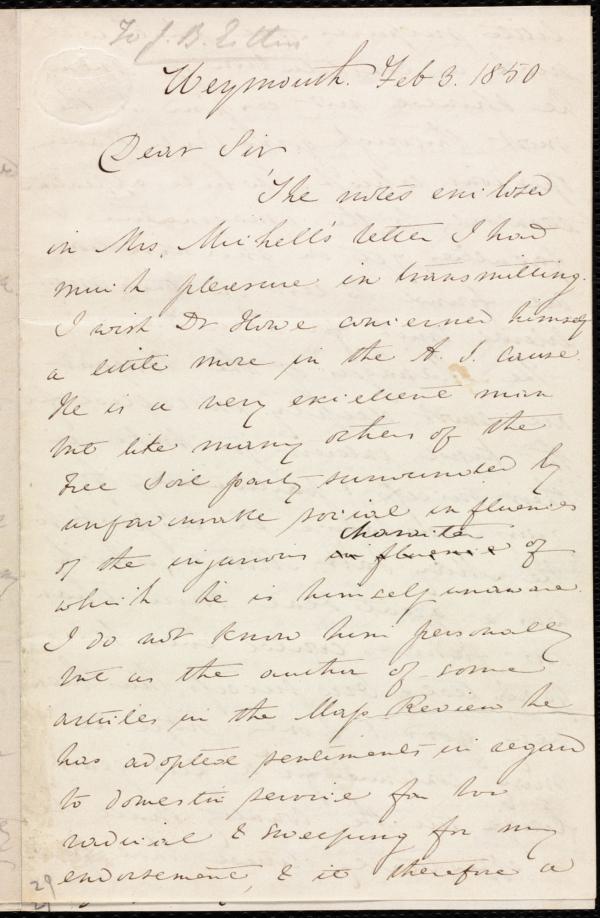 To J. B. Estlin
Weymouth. Feb 3. 1850
Dear Sir
The notes enclosed
in Mrs. Michell's letter I had
much pleasure in transmitting.
I wish Dr Howe concerned himself
a little more in the A. S. cause.
He is a very excellent man
but like many others of the
Free Soil party surrounded by
unfavourable social influences
of the injurious influence character of
which he is himself unaware.
I do not know him personally
but as the author of some
articles in the Mass Review he
has adopted sentiments in regard
to domestic service far too
radical & sweeping for my
endorsement, & it therefore a
29